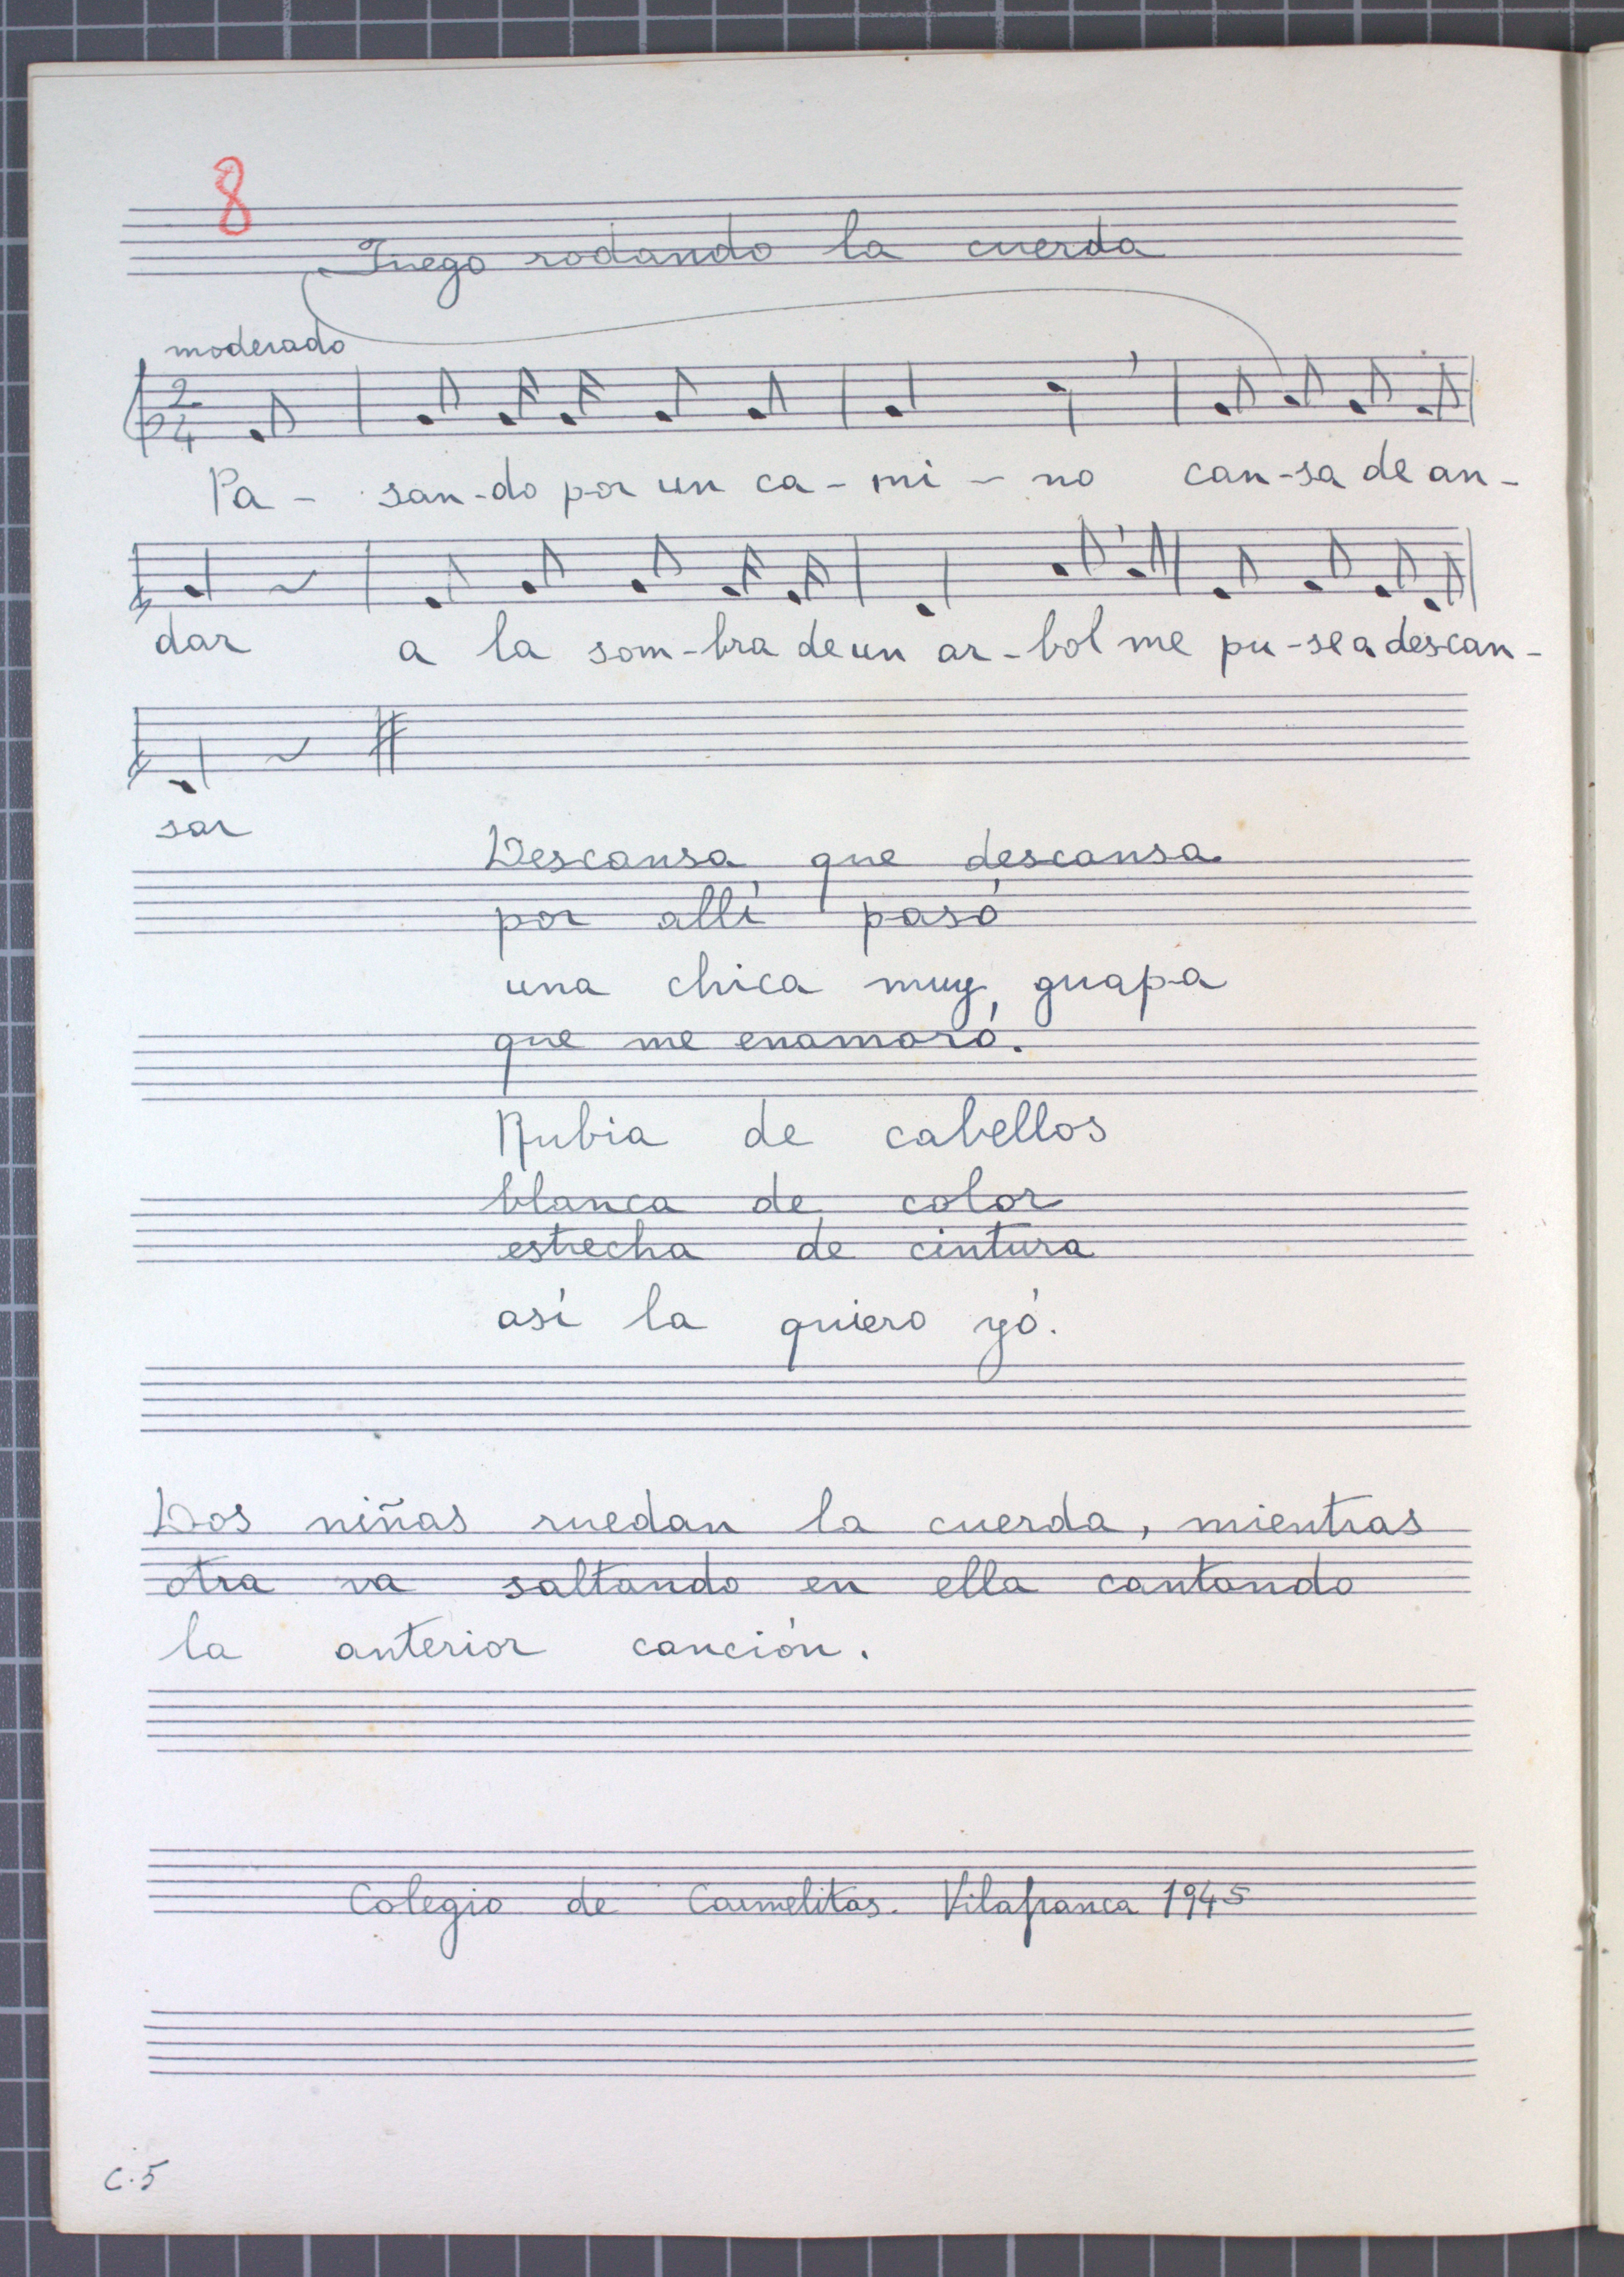 8
Juego rodando la cuerda
moderado
2
4
Pa - san-do por un ca - mi - no can-sa de an-
dar a la som-bra de un ar-bol me pu-se a descan-
sar
Descansa que descansa
por allí pasó
una chica muy guapa
que me enamoró.
Rubia de cabellos
blanca de color
estrecha de cintura
así la quiero yó.
Dos niñas ruedan la cuerda, mientras
otra va saltando en ella cantando
la anterior canción.
Colegio de Carmelitas. Vilafranca 1945
C.5